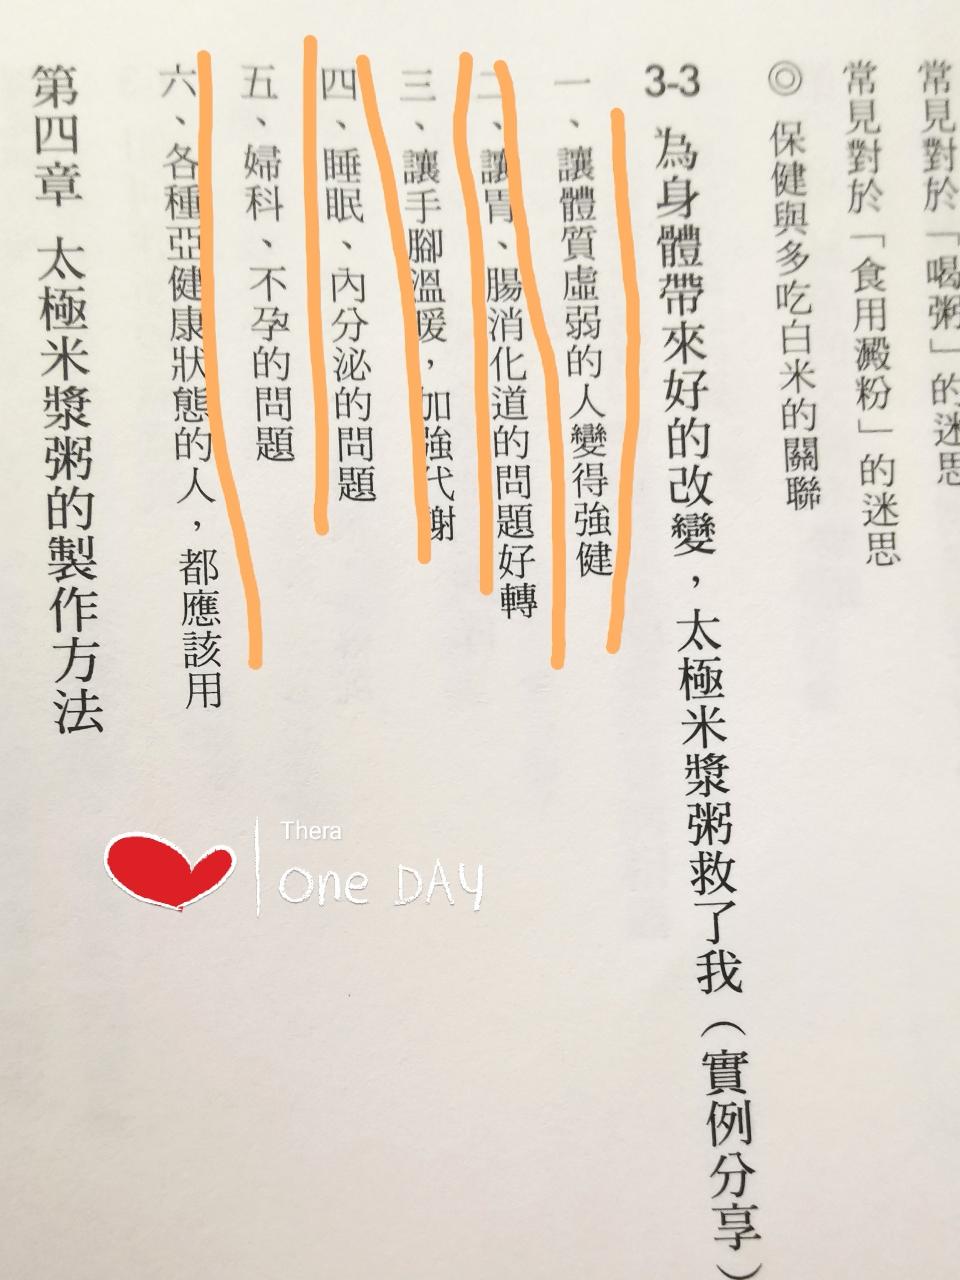 常見對於「喝粥」的迷思
常見對於「食用澱粉」的迷思
◎ 保健與多吃白米的關聯
3-3 為身體帶來好的改變，太極米漿粥救了我（實例分享）
一、讓體質虛弱的人變得強健
二、讓胃、腸消化道的問題好轉
三、讓手腳溫暖，加強代謝
四、睡眠、內分泌的問題
五、婦科、不孕的問題
六、各種亞健康狀態的人，都應該用
第四章 太極米漿粥的製作方法
Thera
One DAY